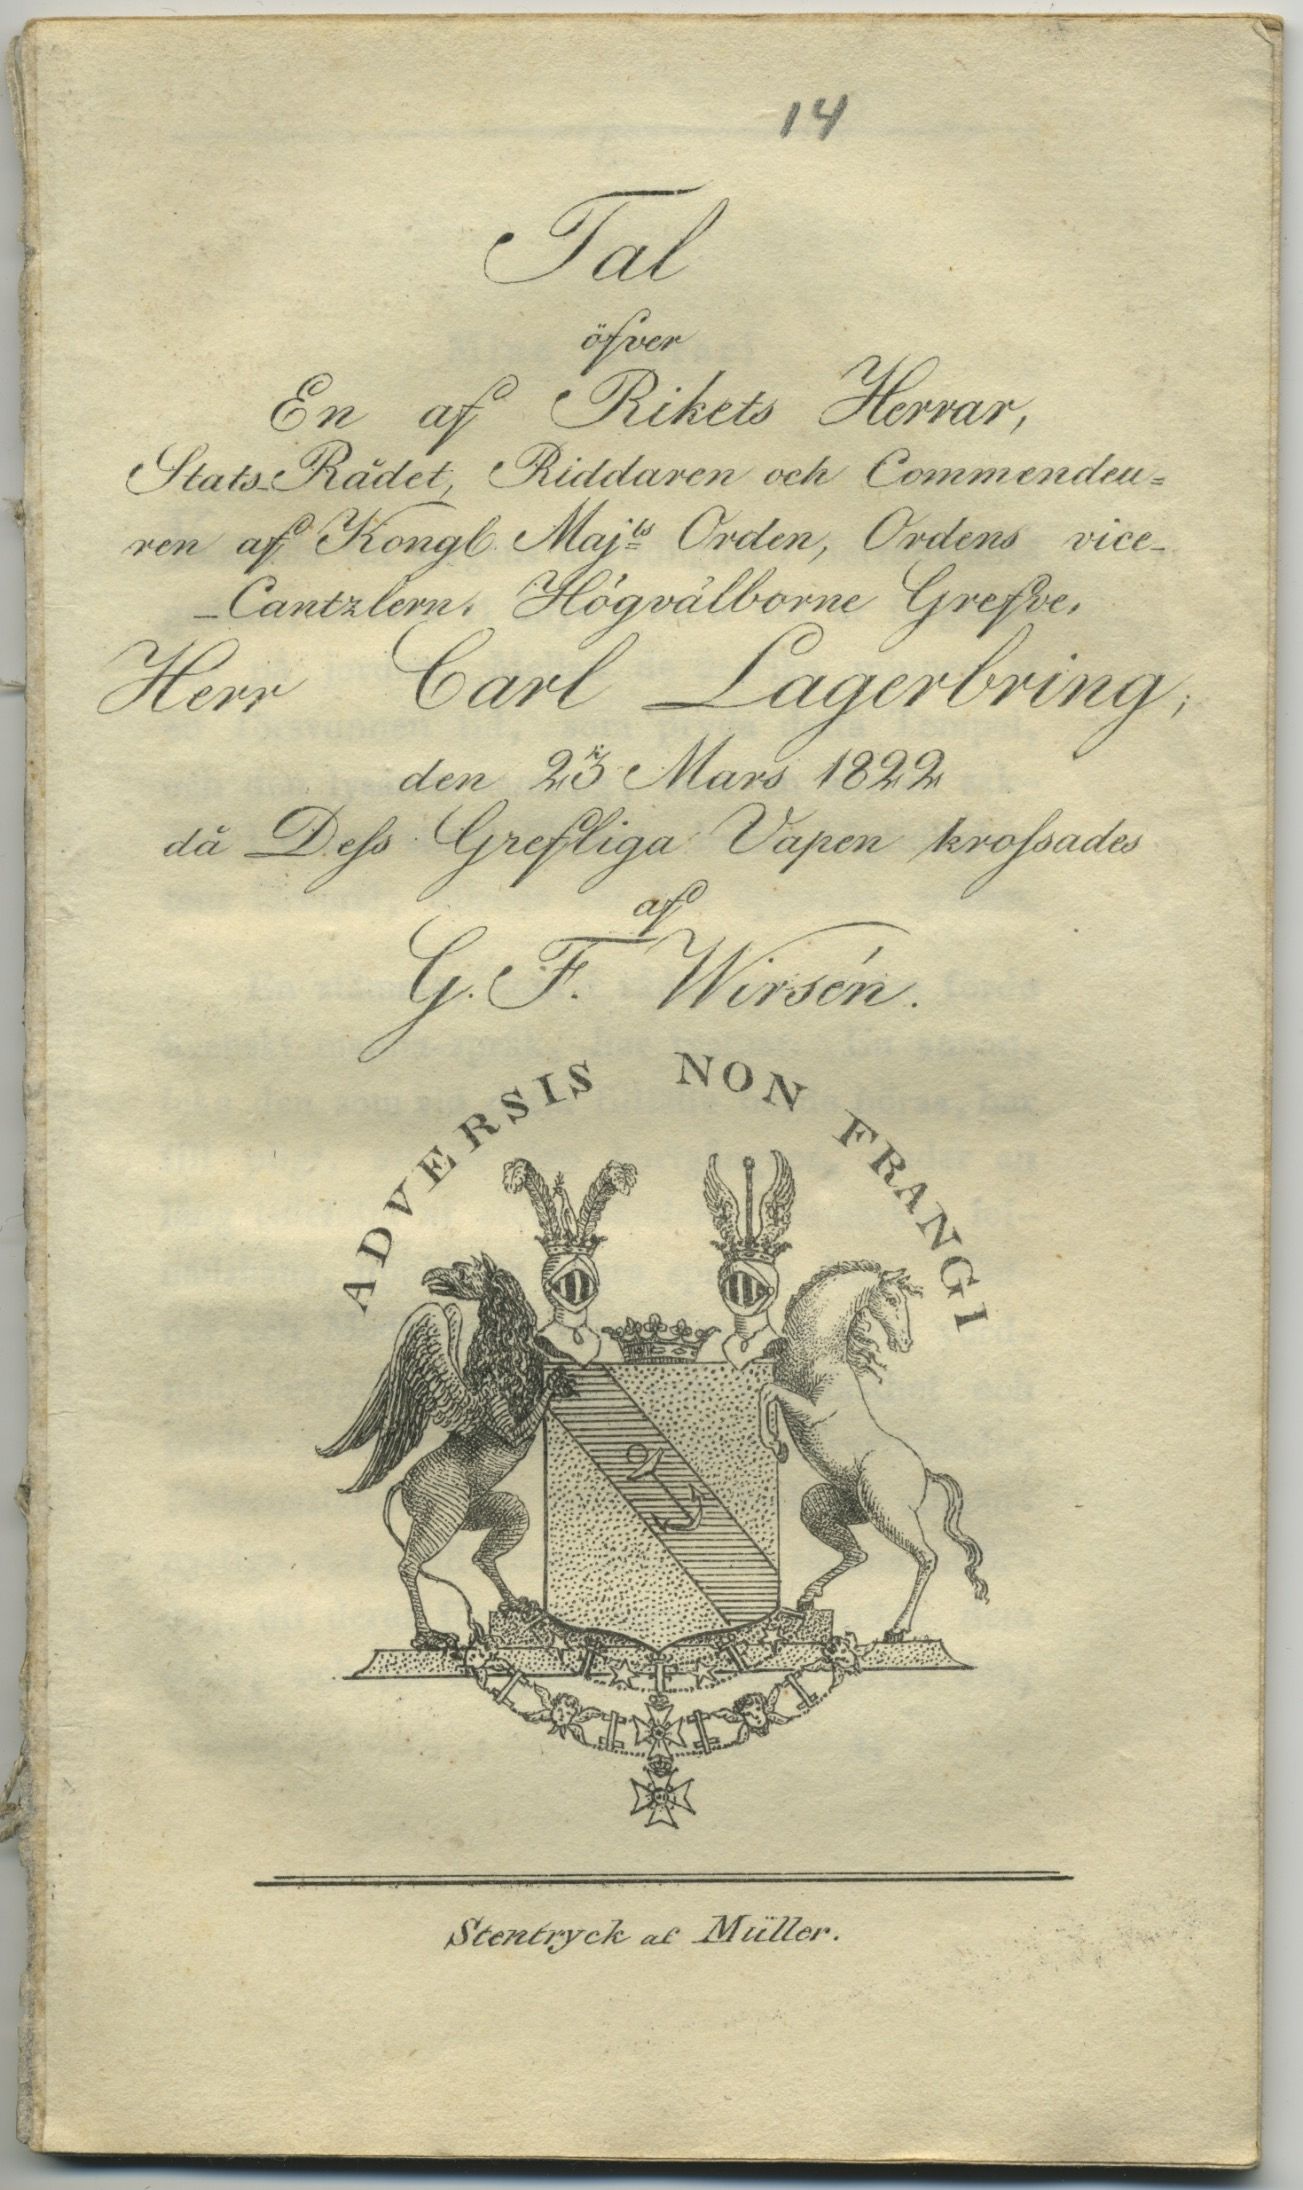 14
Tal
öfver
En af Rikets Herrar,
Stats-Rådet, Riddaren och Commendeu=
ren af Kongl. Maj:ts Orden, Ordens vice-
-Cantzlern, Högvälborne Grefve,
Herr Carl Lagerbring,
den 23 Mars 1822
då Dess Grefliga Vapen krossades
af
G. F. Wirsén.
ADVERSIS NON FRANGI
Stentryck af Müller.